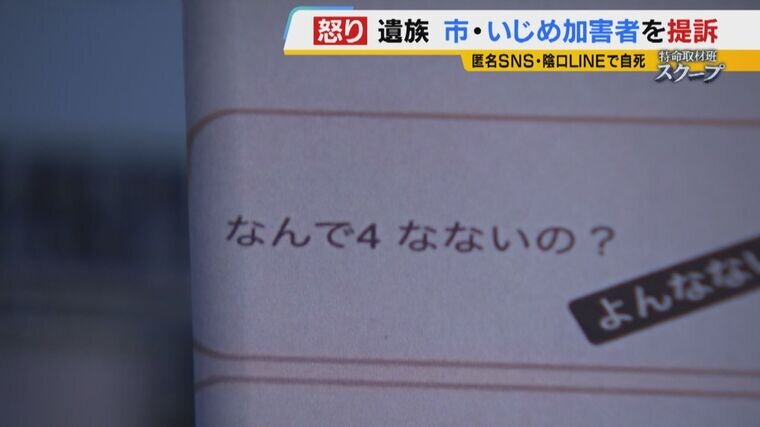 怒り 遺族 市・いじめ加害者を提訴
匿名SNS・陰口LINEで自死
特命取材班
スクープ
なんで4 なないの？
よんなない